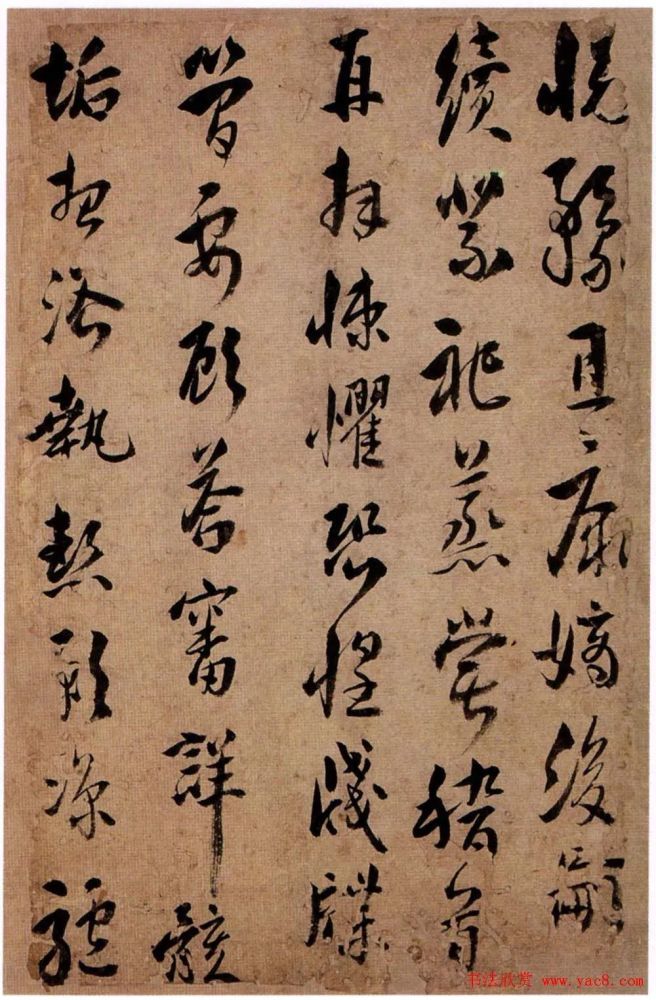 悦豫且康嫡後嗣
續祭祀蒸嘗稽首
再拜悚懼恐惶牋牒
簡要顧荅審詳骸
垢想浴執熱願涼驢
书法欣赏 www.yac8.com